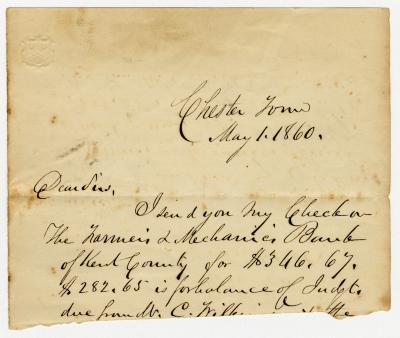 Chester Town
May 1. 1860.
Dear Sir,
I send you my Check on
The Farmers & Mechanics Bank
of Kent County for $346.67.
$282.65 is for balance of Judgt.
due from Mr. C. Wilkins the